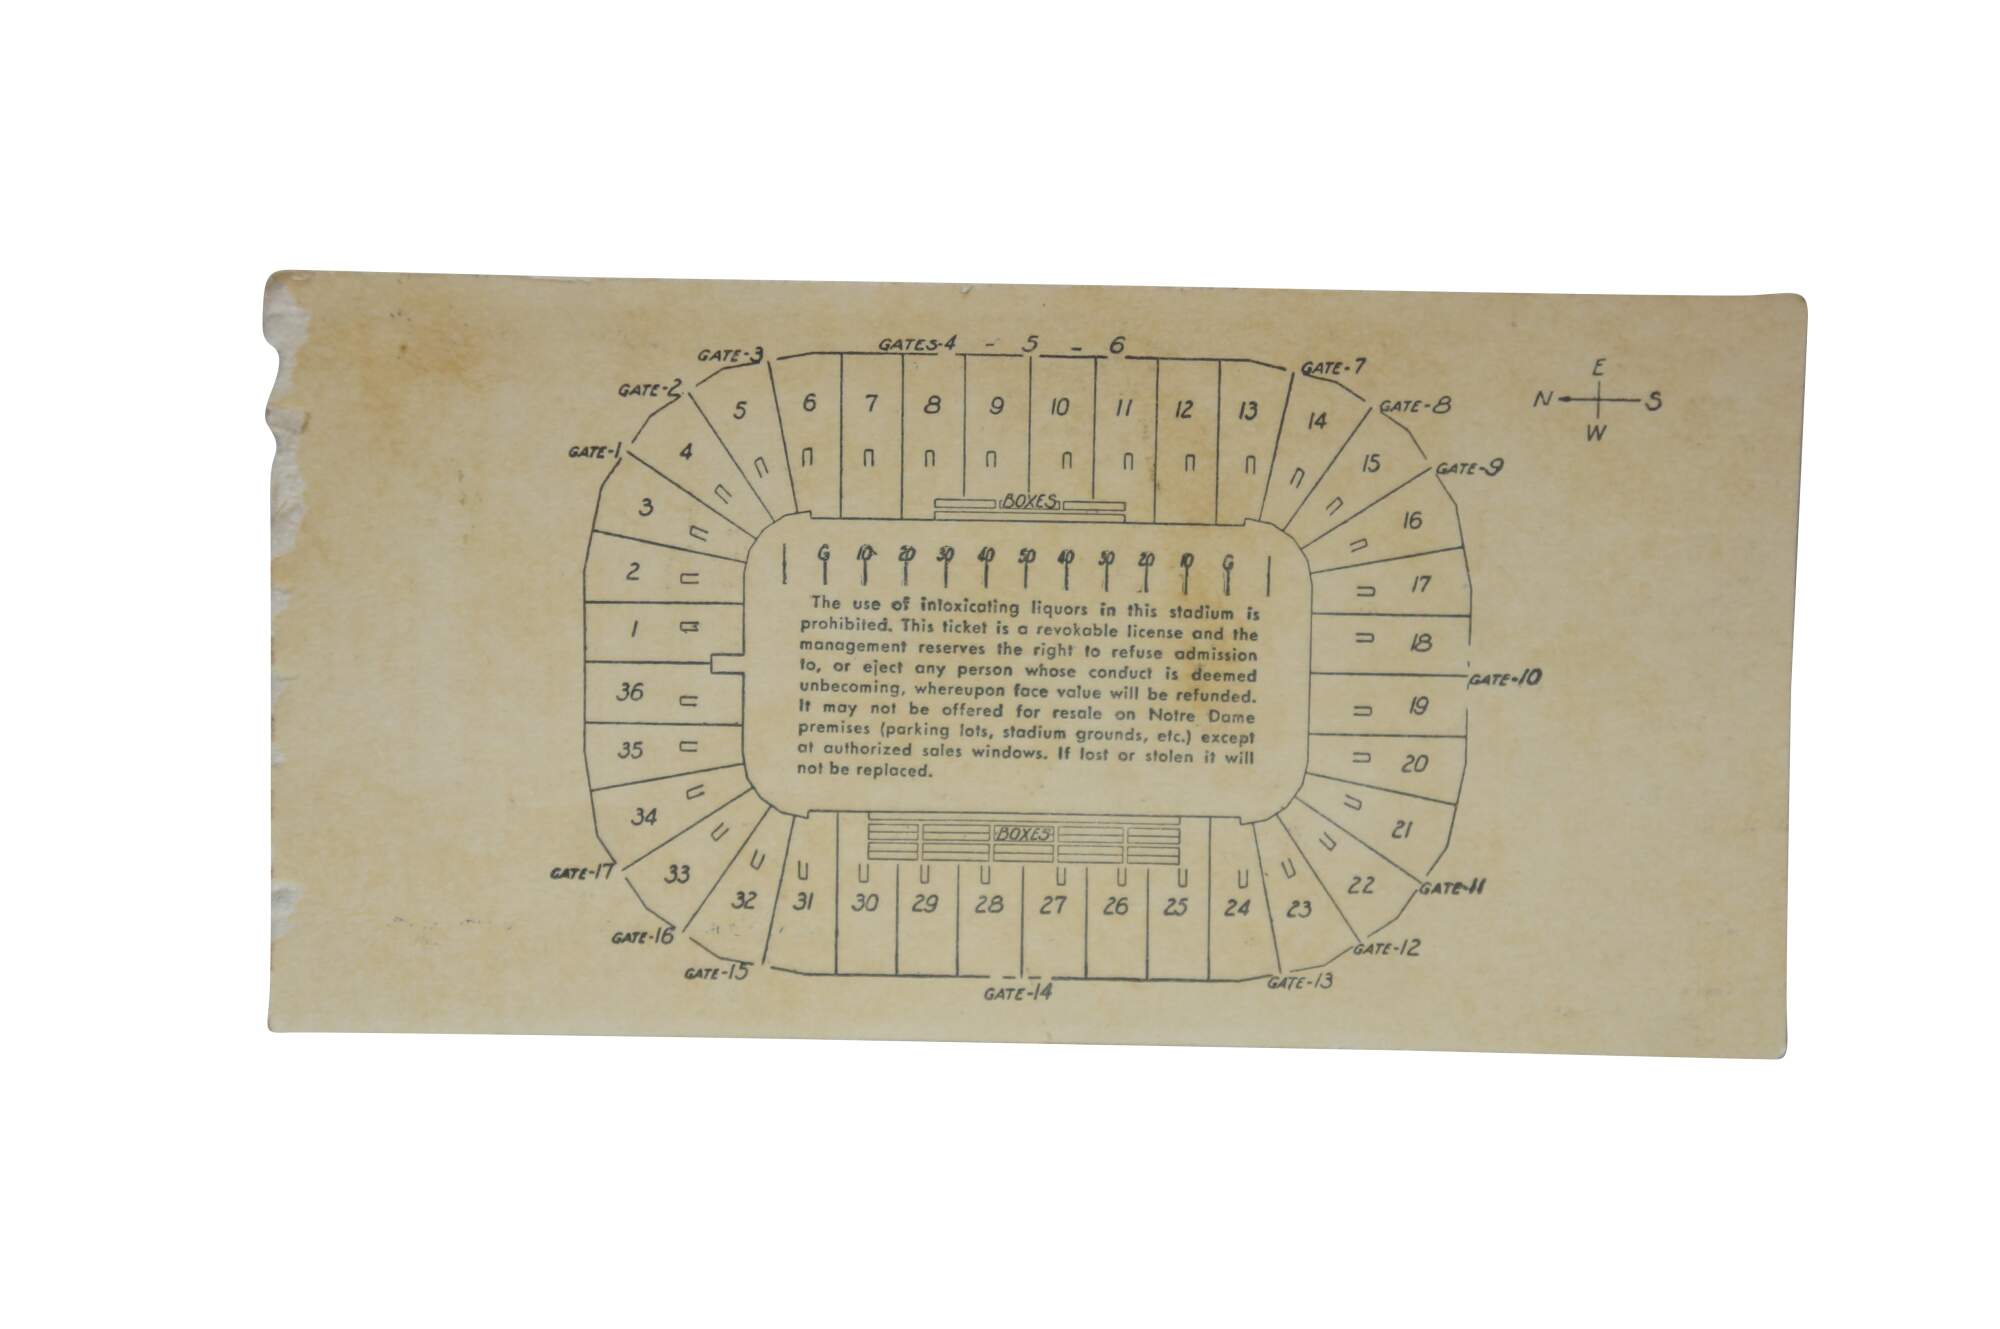 GATES-4 - 5 - 6
GATE-3
GATE-7
GATE-2
GATE-8
GATE-1
GATE-9
E
N S
W
5 6 7 8 9 10 11 12 13 14
4 15
3 16
BOXES
2 17
1 18
36 19
35 20
34 21
33 22
G 10 20 30 40 50 40 30 20 10 G
The use of intoxicating liquors in this stadium is
prohibited. This ticket is a revokable license and the
management reserves the right to refuse admission
to, or eject any person whose conduct is deemed
unbecoming, whereupon face value will be refunded.
It may not be offered for resale on Notre Dame
premises (parking lots, stadium grounds, etc.) except
at authorized sales windows. If lost or stolen it will
not be replaced.
GATE-10
BOXES
32 31 30 29 28 27 26 25 24 23
GATE-17
GATE-11
GATE-16
GATE-12
GATE-15
GATE-13
GATE-14